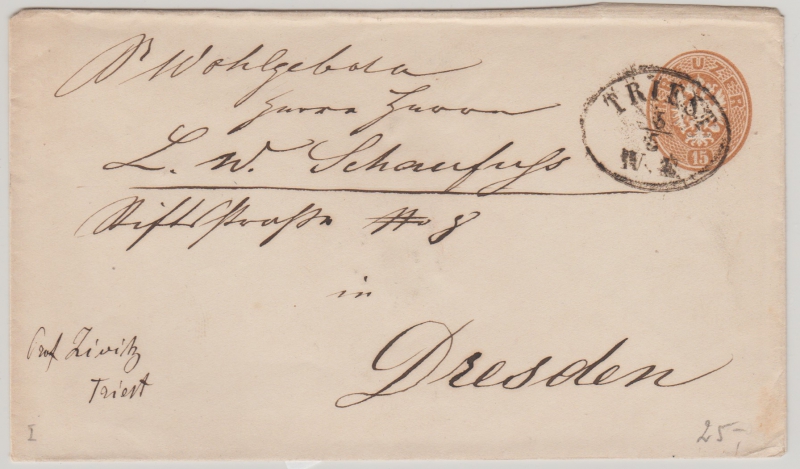 Sr Wohlgeboren
Herrn Herrn
L. W. Schaufuss
Stiftsstraße No 8
in
Dresden
Prof
Triest
KREUZER
15
TRIEST
5
IV. E.
I
25,-